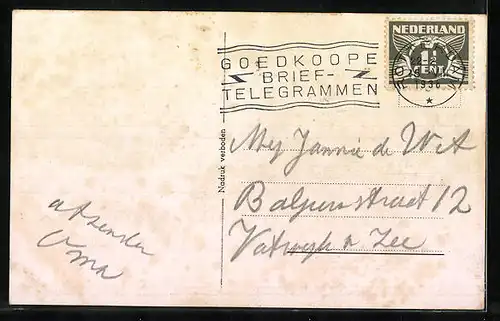 GOEDKOOPE
BRIEF-
TELEGRAMMEN
NEDERLAND
1½
CENT
1936
Nadruk verboden
Mej Jannie de Wit
straat 12
a Zee
afzender
Oma